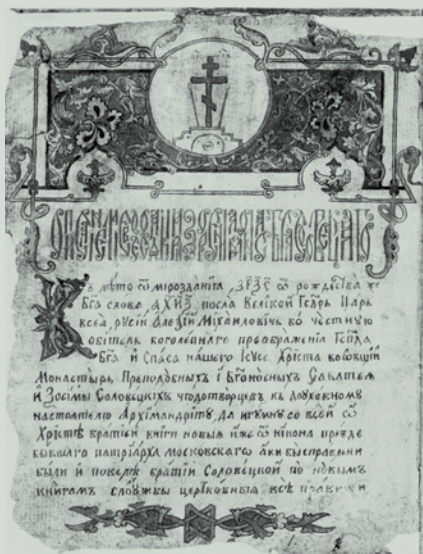 Въ лѣто ѿ мирозданїѧ ҂ЗРѮЕ ѿ рождества же
Бга слова ҂АХНЗ посла Великой Гсдрь Царь
всеѧ русїи Алеѯїй Міхаиловичь во честную
обитель боголѣпнаго преображенїѧ Гспда
Бга и Спаса нашего Ісуса Хрїста
Монастырь, Преподобныхъ і Бгоносныхъ Саватеѧ
и Зосимы Соловецкїхъ чюдотворцевъ, къ духовному
настоѧтелю Архїмандриту, да игумну со всей ѿ
Хрїстѣ братїей книги новыѧ иже ѿ никона прежде
бывшаго патрїарха московскаго аки бы справлени
были и повелѣ братїи Соловецкой по новымъ
книгамъ службы церковныѧ всѣ правити